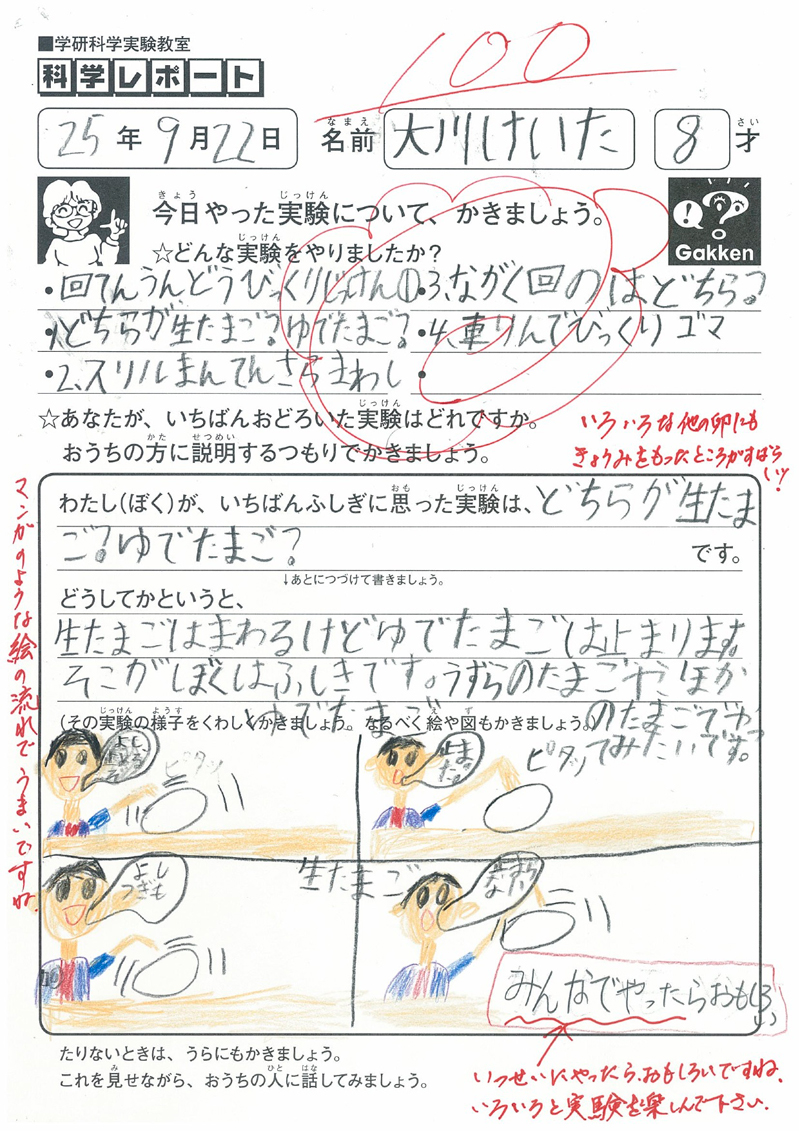 ■学研科学実験教室
科学レポート
100
25年9月22日 名前 大川けいた 8才
なまえ さい
きょう じっけん
今日やった実験について、かきましょう。
じっけん
☆どんな実験をやりましたか?
Gakken
・回てんうんどうびっくりじっけん①
・1、どちらが生たまご?ゆでたまご?
・2、スリルまんてんさらまわし
・3、ながく回のはどちら?
・4、車りんでびっくりゴマ
・
じっけん
☆あなたが、いちばんおどろいた実験はどれですか。
かた せつめい
おうちの方に説明するつもりでかきましょう。
いろいろな他の卵にも
きょうみをもったところがすばらしい!
おも じっけん
わたし(ぼく)が、いちばんふしぎに思った実験は、どちらが生たま
ご?ゆでたまご?です。
↓あとにつづけて書きましょう。
どうしてかというと、
生たまごはまわるけどゆでたまごは止まります。
そこがぼくはふしきです。うずらのたまごやほか
のたまごでやっ
てみたいです。
じっけん ようす え ず
(その実験の様子をくわしくかきましょう。なるべく絵や図もかきましょう。)
ゆでたまご
ピタッ
止まった
ピタッ
マンガのような絵の流れでうまいですね。
生たまご
よし
つぎも
みんなでやったらおもしろい
いっせいにやったら、おもしろいですね。
いろいろと実験を楽しんで下さい。
たりないときは、うらにもかきましょう。
み ひと はな
これを見せながら、おうちの人に話してみましょう。